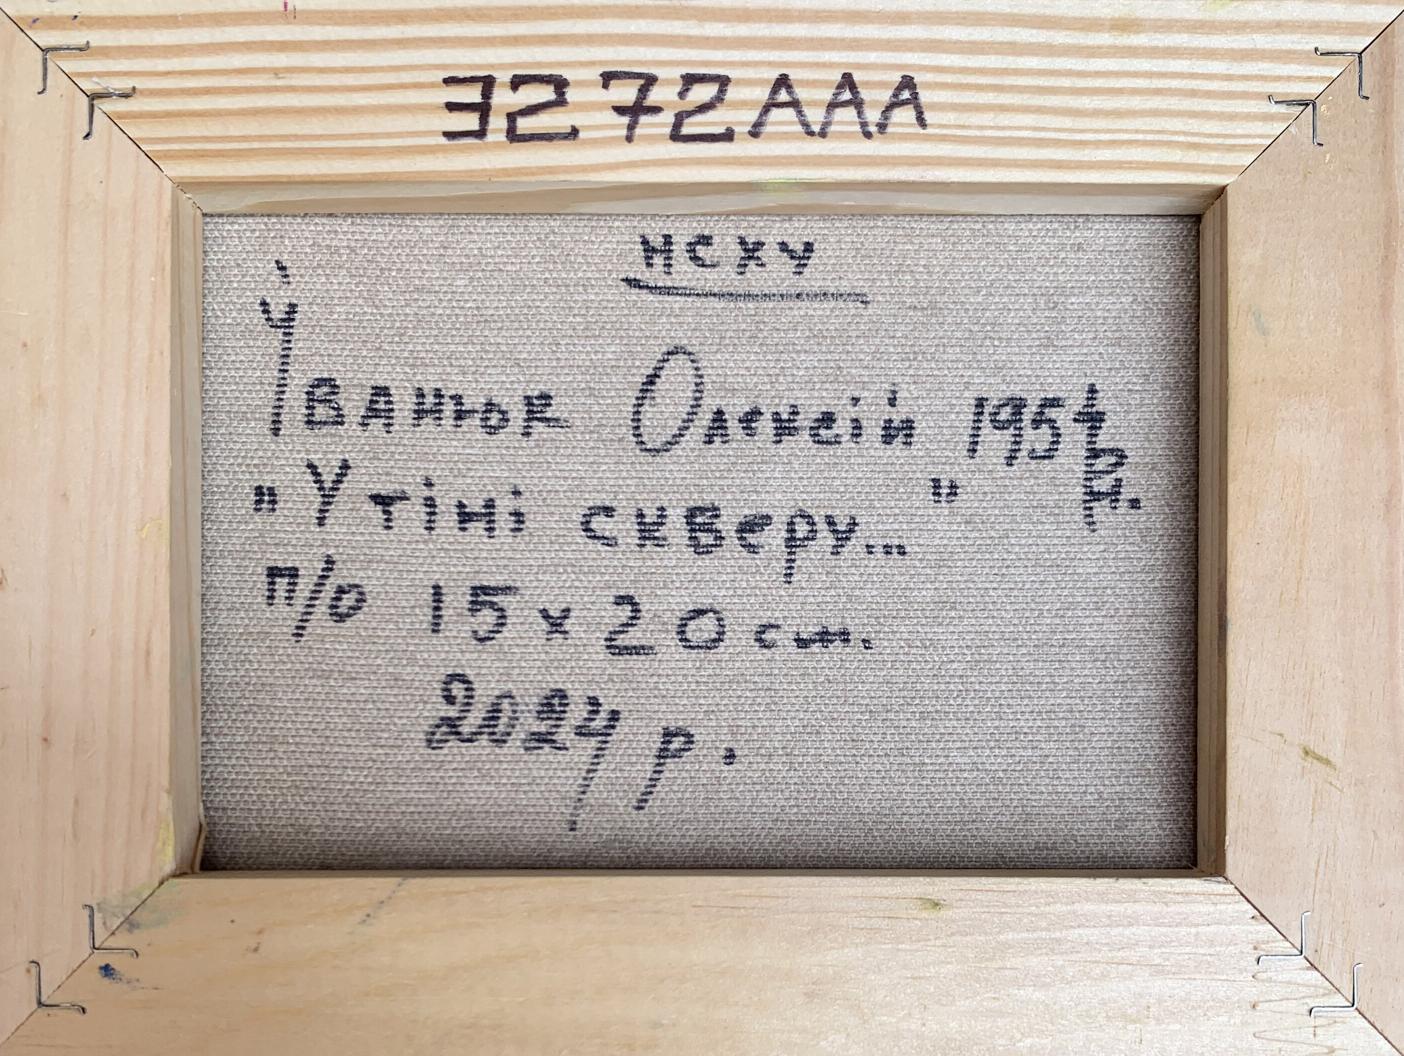 3272AAA
нсху
Іванюк Олексій 1954 р.н.
"У тіні скверу..."
п/о 15 х 20 см.
2024 р.